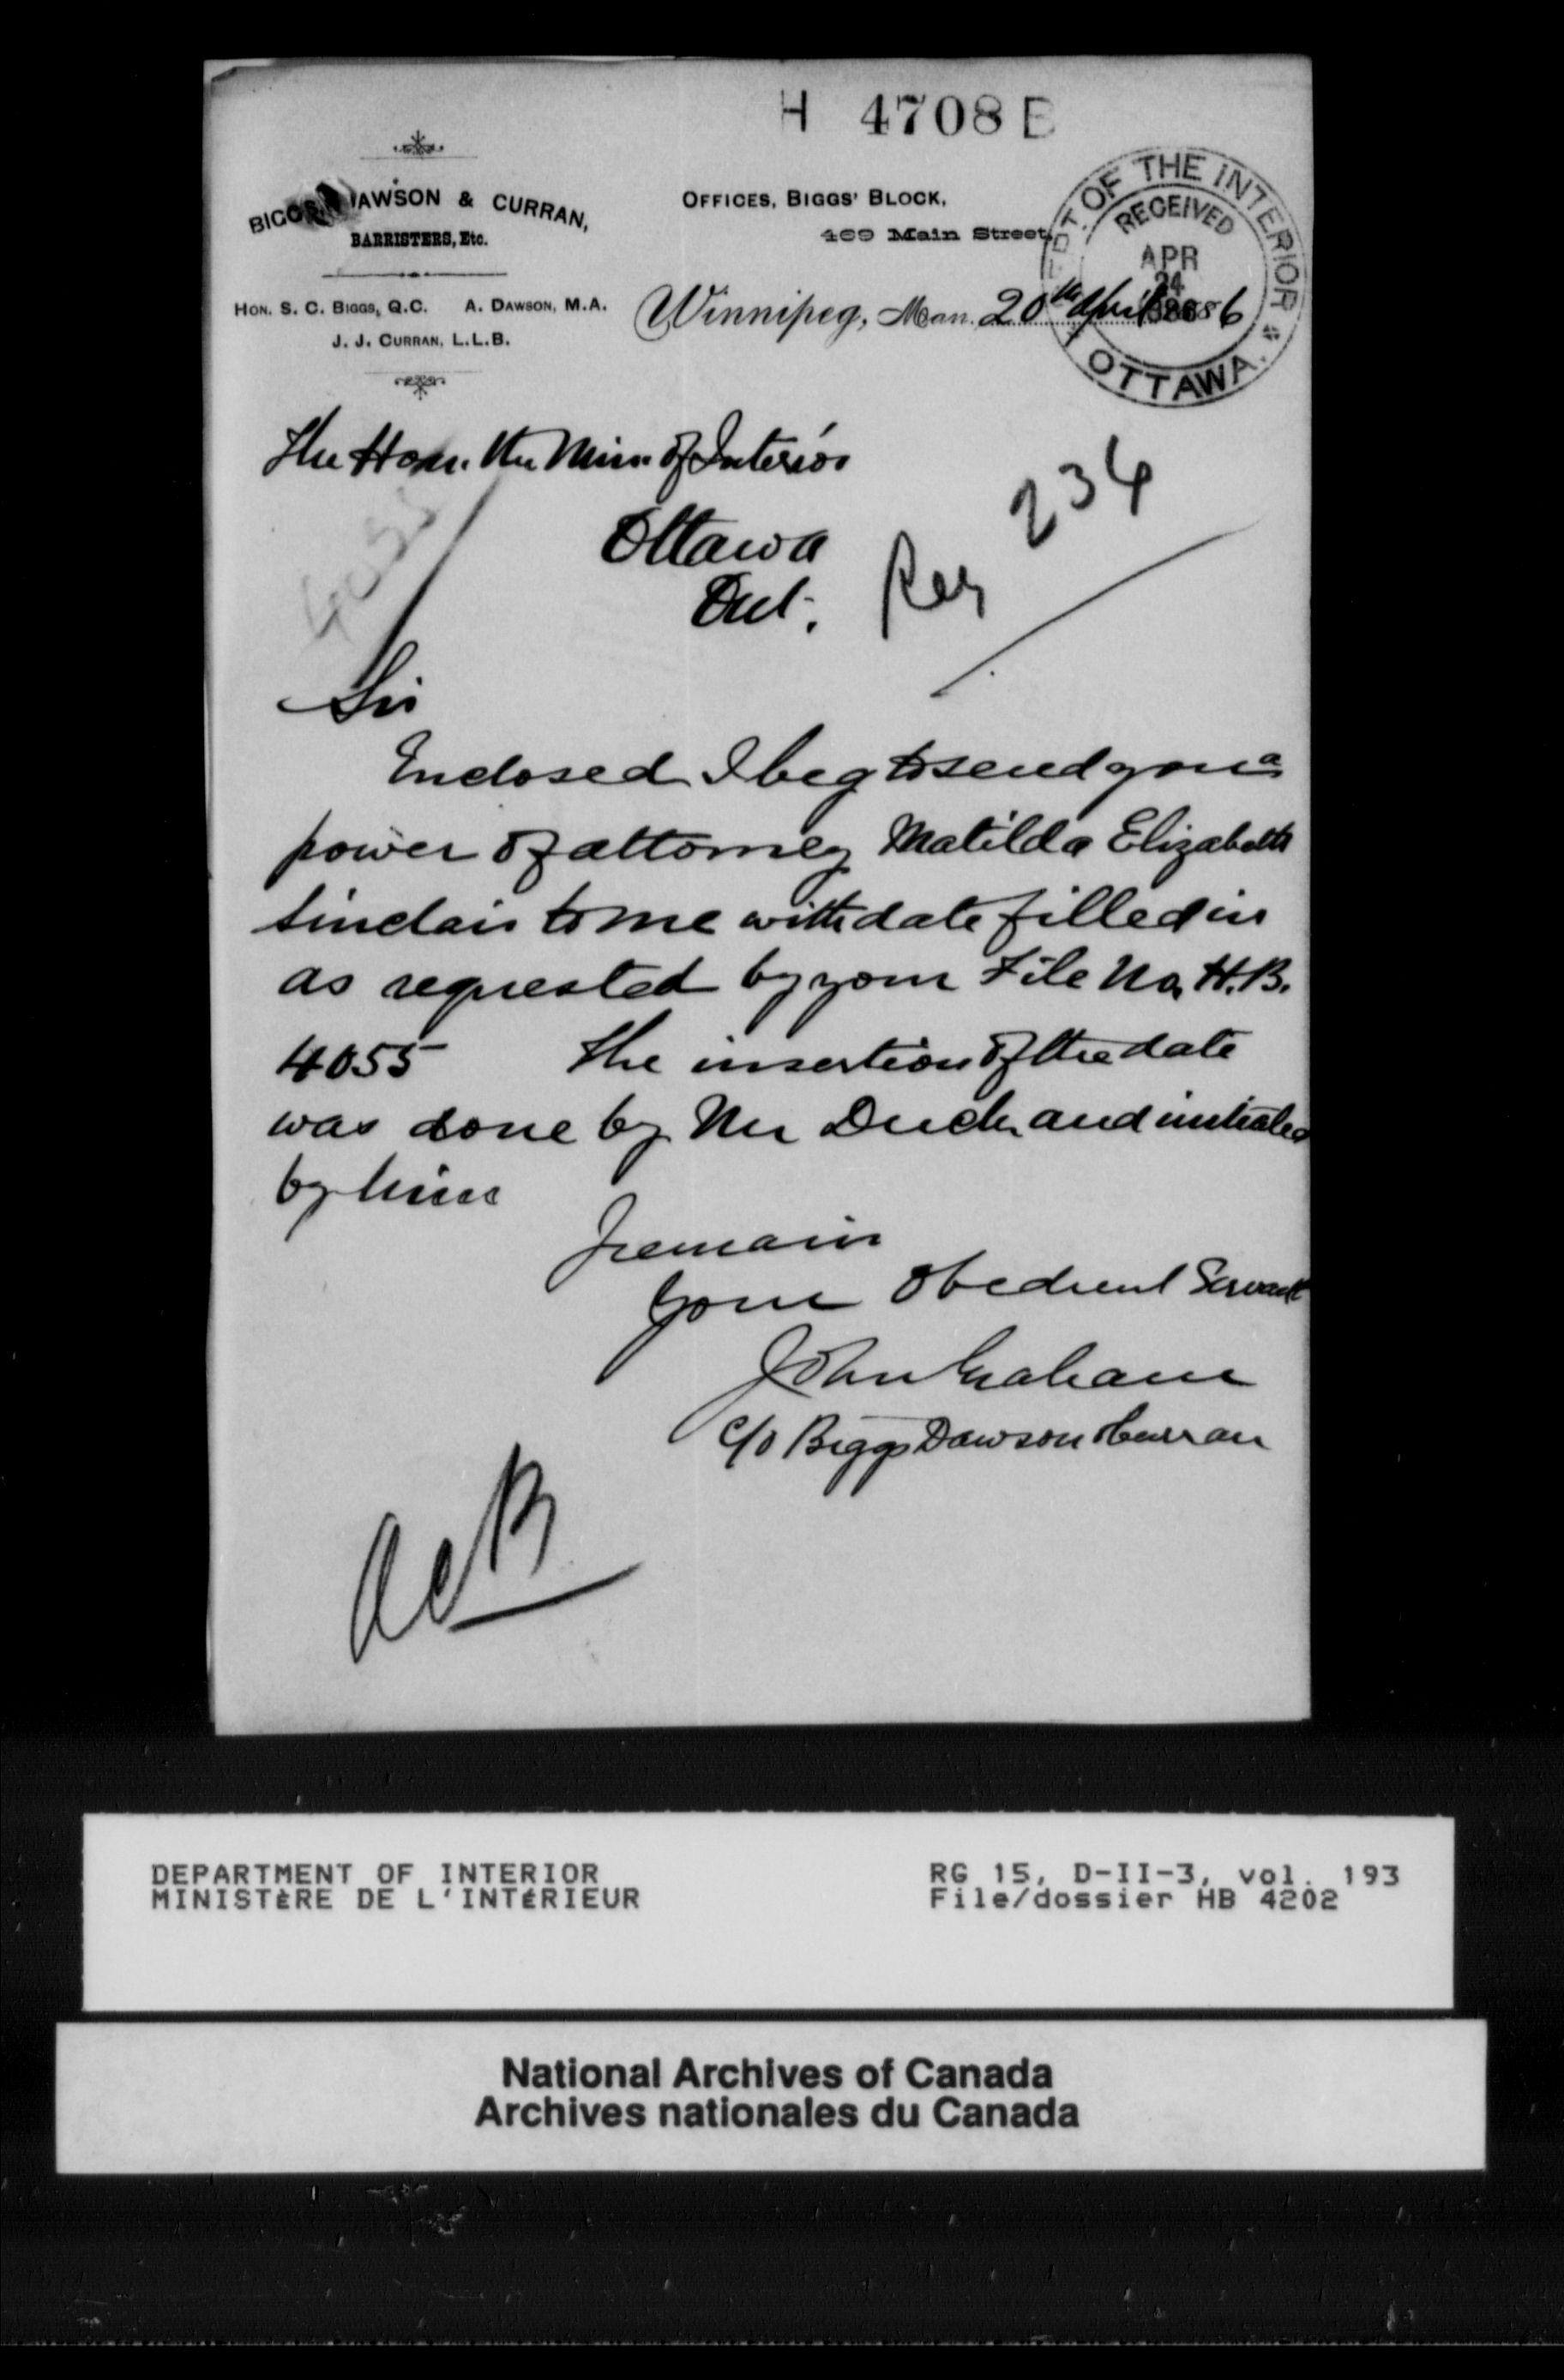 H 4708 B
BIGGS, DAWSON & CURRAN,
BARRISTERS, Etc.
HON. S. C. BIGGS, Q.C. A. DAWSON, M.A.
J. J. CURRAN, L.L.B.
OFFICES, BIGGS' BLOCK,
469 Main Street,
Winnipeg, Man. 20th April 1886
DEPT. OF THE INTERIOR
RECEIVED
APR
24
1886
OTTAWA.
The Hon. the Min. of Interior
Ottawa
Ont.
234
4055
Sir
Enclosed I beg to send you a
power of attorney Matilda Elizabeth
Sinclair to me with date filled in
as requested by your File No. H.B.
4055 The insertion of the date
was done by Mr Duck and initialed
by him
I remain
Your Obedient Servant
John Graham
c/o Biggs Dawson & Curran
DEPARTMENT OF INTERIOR
MINISTÈRE DE L'INTÉRIEUR
RG 15, D-II-3, vol. 193
File/dossier HB 4202
National Archives of Canada
Archives nationales du Canada